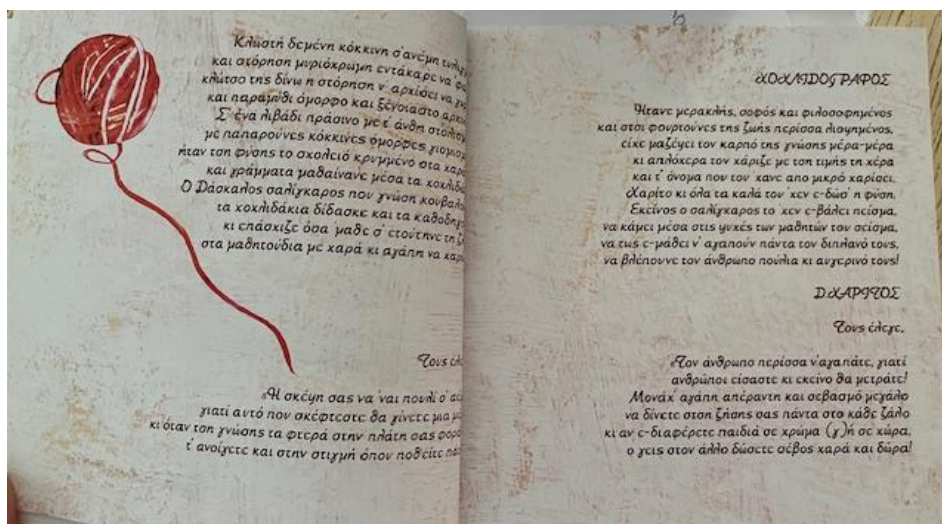 Κλωστή δεμένη κόκκινη σ'ανέμη
και στόρηση μυριόχρωμη εντάκαρε να
κλώτσο της δίνω η στόρηση ν' αρχίσει να
και παραμύθι όμορφο και ξένοιαστο
Σ' ένα λιβάδι πράσινο με τ' άνθη
με παπαρούνες κόκκινες όμορφες
ήταν τση φύσης το σχολειό κρυμμένο στα
και γράμματα μαθαίνανε μέσα τα
Ο Δάσκαλος σαλίγκαρος που γνώση
τα χοχλιδάκια δίδασκε και τα
κι επάσχιζε όσα 'μαθε σ' ετούτηνε τη
στα μαθητούδια με χαρά κι αγάπη να
Τους
«Η σκέψη σας να 'ναι πουλί σ'
γιατί αυτό που σκέφτεστε θα γίνετε μια
κι όταν τση γνώσης τα φτερά στην πλάτη σας
τ' ανοίγετε και στην στιγμή όπου ποθείτε
ΧΟΧΛΙΔΟΓΡΑΡΟΣ
Ήτανε μερακλής, σοφός και φιλοσοφημένος
και στσι φουρτούνες της ζωής περίσσα λιοψημένος,
είχε μαζέψει τον καρπό της γνώσης μέρα-μέρα
κι απλόχερα τον χάριζε με τση τιμής τη χέρα
και τ' όνομα που τον 'χανε απο μικρό χαρίσει,
Χαρίτο κι όλα τα καλά τον 'χεν ε-δώσ' η φύση.
Εκείνος ο σαλίγκαρος το 'χεν ε-βάλει πείσμα,
να κάμει μέσα στις ψυχές των μαθητών του σείσμα,
να τως ε-μάθει ν' αγαπούν πάντα τον διπλανό τους,
να βλέπουνε τον άνθρωπο πούλια κι αυγερινό τους!
Δ.ΧΑΡΙΤΟΣ
Τους έλεγε,
«Τον άνθρωπο περίσσα ν'αγαπάτε, γιατί
ανθρώποι είσαστε κι εκείνο θα μετράτε!
Μονάχ' αγάπη απέραντη και σεβασμό μεγάλο
να δίνετε στση ζήσης σας πάντα στο κάθε ζάλο
κι αν ε-διαφέρετε παιδιά σε χρώμα (γ)ή σε χώρα,
ο γεις στον άλλο δώσετε σέβος χαρά και δώρα!